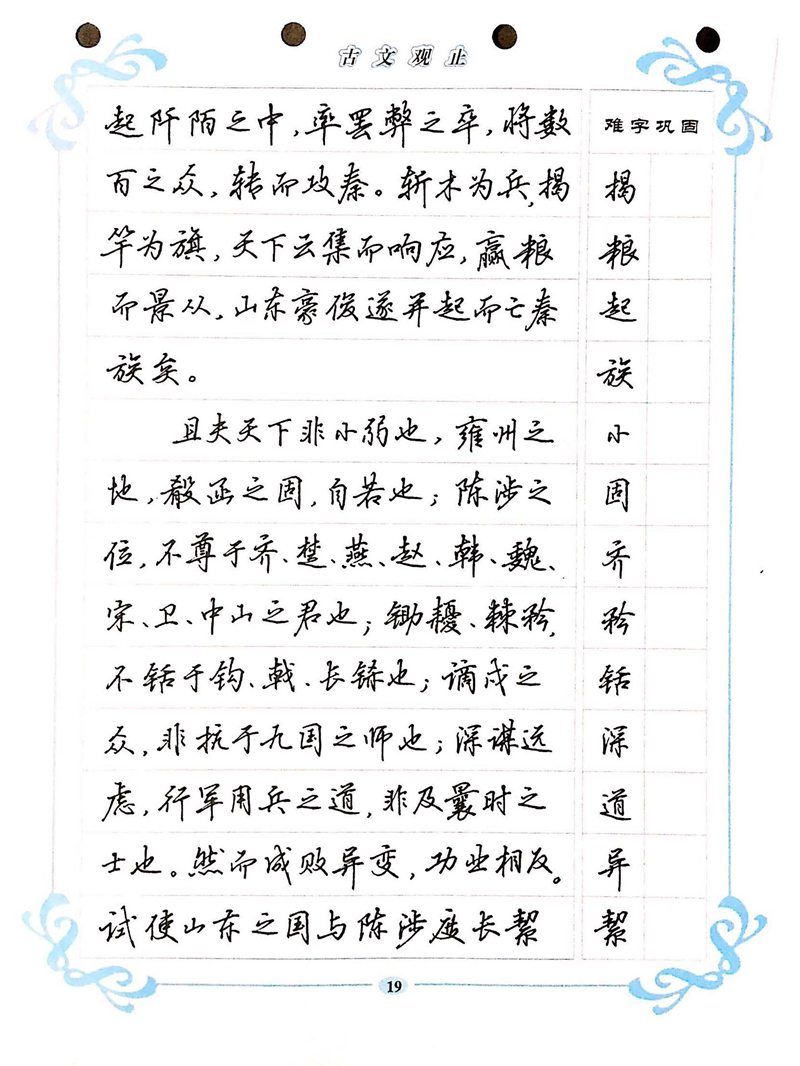 古文观止
起阡陌之中，率罢弊之卒，将数
百之众，转而攻秦。斩木为兵，揭
竿为旗，天下云集而响应，赢粮
而景从，山东豪俊遂并起而亡秦
族矣。
且夫天下非小弱也，雍州之
地，殽函之固，自若也；陈涉之
位，不尊于齐、楚、燕、赵、韩、魏、
宋、卫、中山之君也；锄耰、棘矜，
不铦于钩、戟、长铩也；谪戍之
众，非抗于九国之师也；深谋远
虑，行军用兵之道，非及曩时之
士也。然而成败异变，功业相反。
试使山东之国与陈涉度长絜
难字巩固
揭
粮
起
族
小
固
齐
矜
铦
深
道
异
絜
19